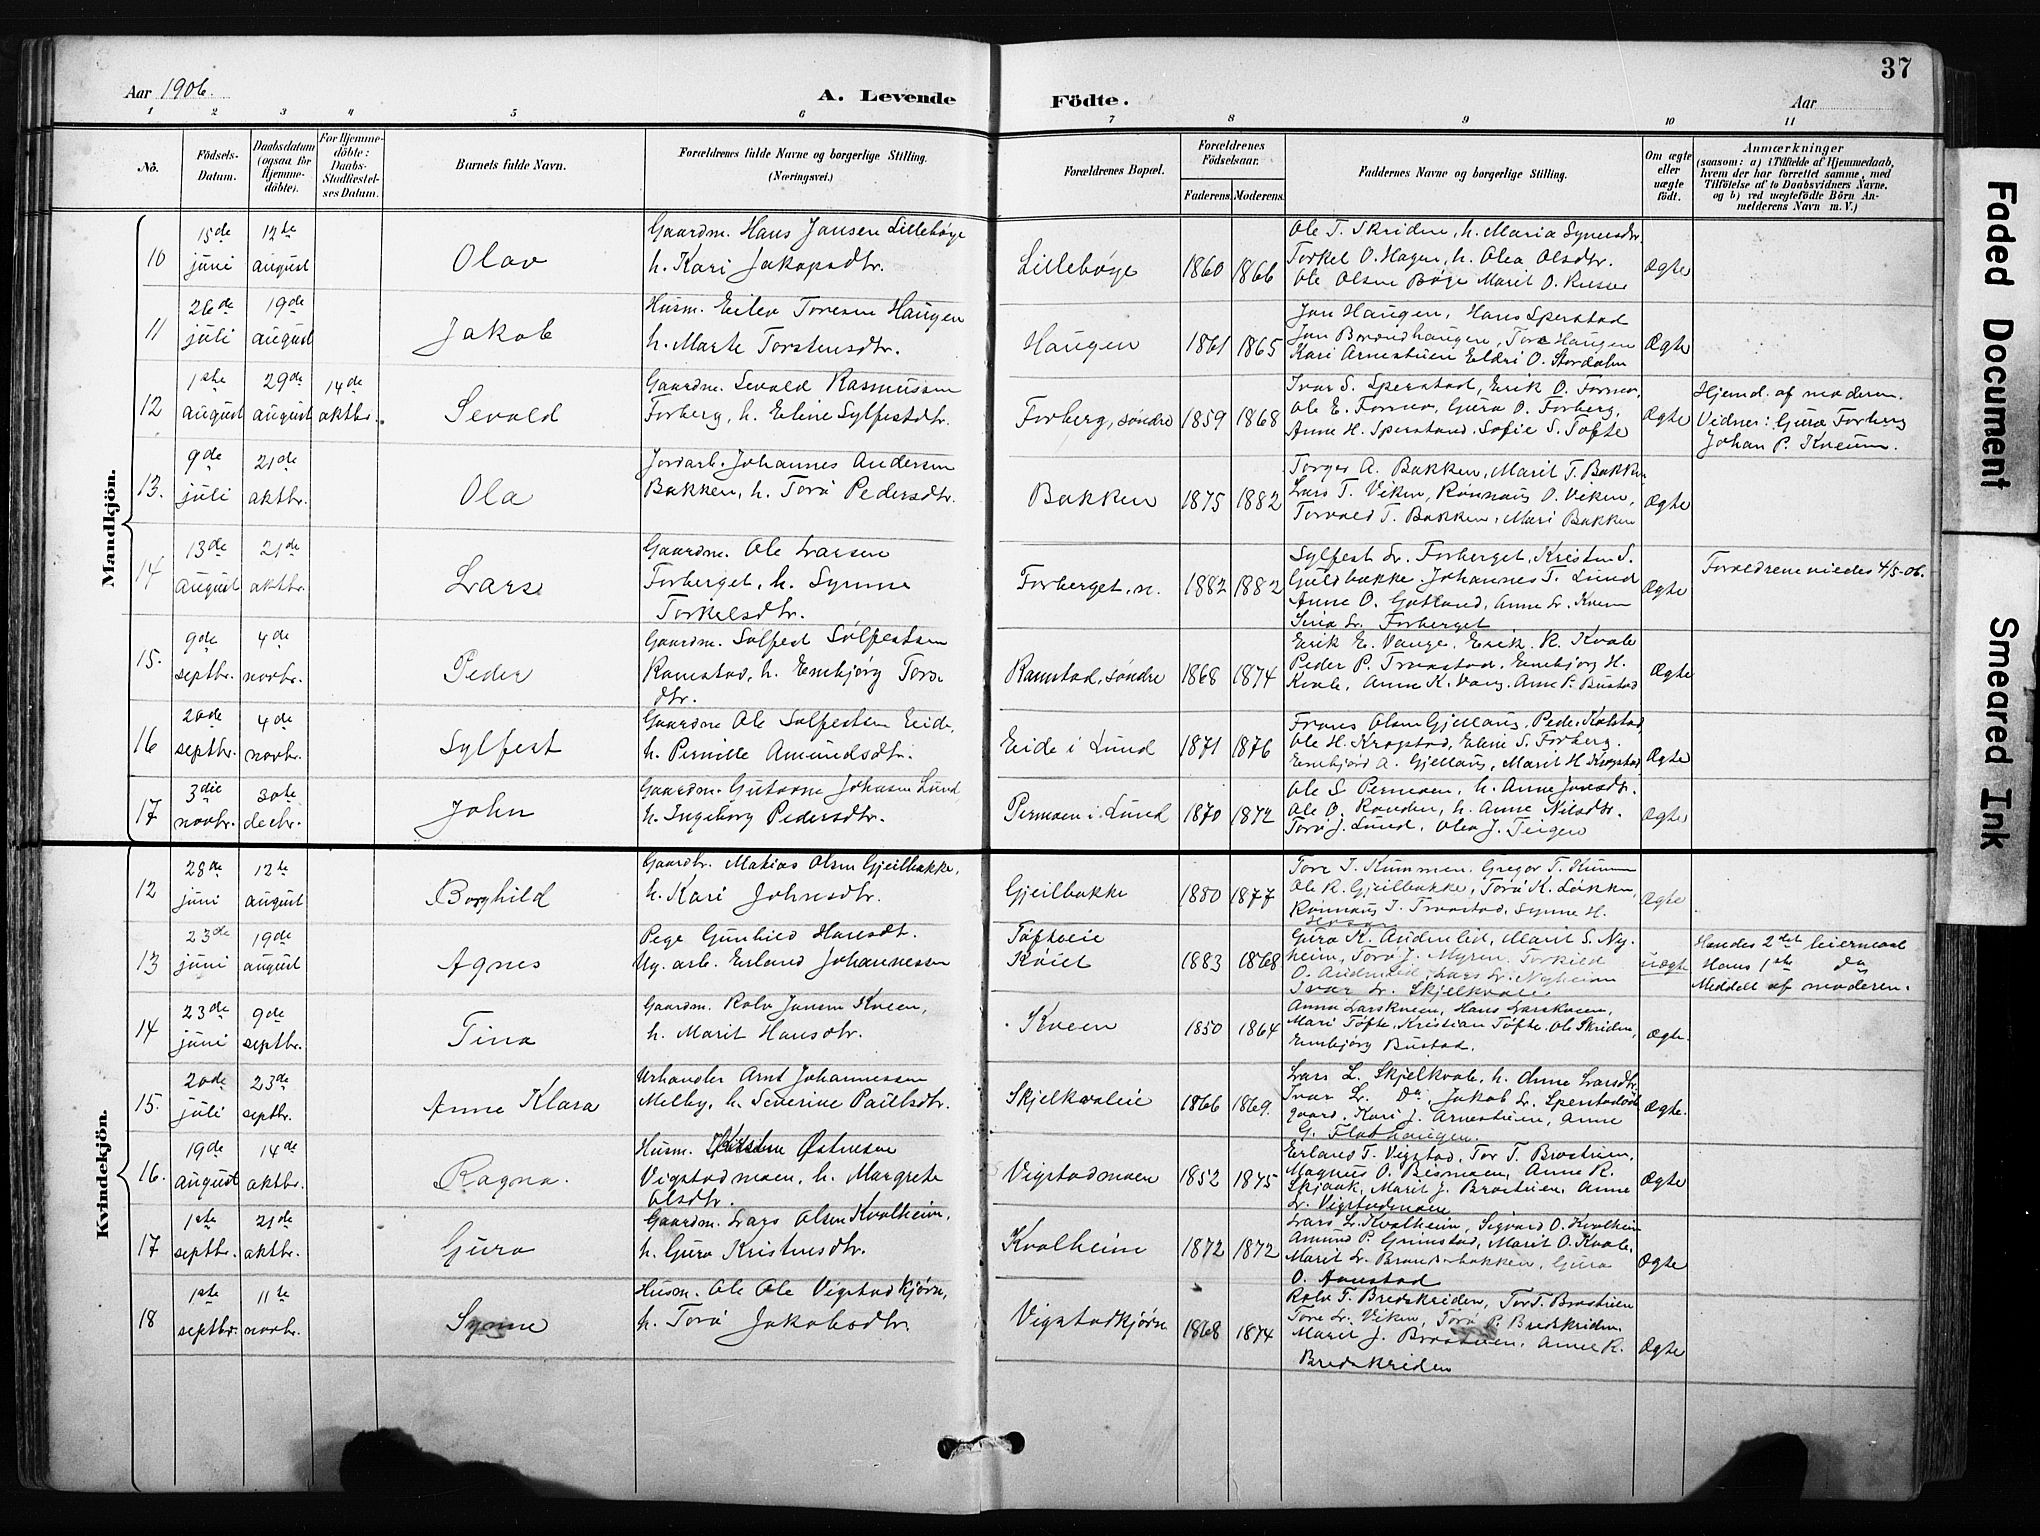 37
Aar 1906.
A. Levende Födte.
Aar
1 2 3 4 5 6 7 8 9 10 11
No.
Födsels-Datum.
Daabsdatum (ogsaa for Hjemme-döbte).
For Hjemme-döbte: Daabs-Stadfæstel-ses Datum.
Barnets fulde Navn.
Forældrenes fulde Navne og borgerlige Stilling.
(Næringsvei.)
Forældrenes Bopæl.
Forældrenes Födselsaar.
Faderens. Moderens.
Faddernes Navne og borgerlige Stilling.
Om ægte eller uægte födt.
Anmærkninger
(saasom: a) i Tilfælde af Hjemmedaab,
hvem der har forrettet samme, med
Tilföielse af to Daabsvidners Navne.
og b) ved uægtefödte Börn An-
melderens Navn m. V.)
Mandkjön.
10 15de juni 12te august Olav
Gaardm. Hans Jansen Lillebøge
h. Kari Jakopsdtr.
Lillebøge 1860 1866
Ole T. Skriden, h. Maria Synersdtr.
Torkel O. Hagen, h. Olea Olsdtr.
Ole Olsen Bøge Marit O.
Ægte
11 26de juli 19de august Jakob
Husm. Eilev Toresen Haugen
h. Marte Torstensdtr.
Haugen 1861 1865
Jan Haugen, Hans Sperstad
Jan Brændhaugen, Tore Haugen
Kari Arnestuen Eldri O. Stordalen
Ægte
12 1ste august 29de august 14de oktbr. Sevald
Gaardm. Sevald Rasmussen
Forberg, h. Eline Sylfestdtr.
Forberg, søndre 1859 1868
Ivar S. Sperstad, Erik O. Formo,
Ole E. Formo, Guro O. Forberg,
Anne H. Sperstad. Sofie S. Tofte
Ægte
Hjemd. af moderen.
Vidner: Guro Forberg
Johan P. Kveum.
13. 9de juli 21de oktbr. Ola
Jordarb. Johannes Andersen
Bakken, h. Torø Pedersdtr.
Bakken 1875 1882
Torger A. Bakken, Marit T. Bakken
Lars T. Viken, Rønnaug O. Viken,
Torvald T. Bakken, Mari Bakken
Ægte
14 13de august 21de oktbr. Lars
Gaardm. Ole Larsen
Forberget, h. Synne
Torkelsdtr.
Forberget, n. 1882 1882
Sylfest L. Forberget, Kristen S.
Guldbakke. Johannes T. Lund
Anne O. Gotland, Anne L. Kveen
Sina L. Forberget
Ægte
Forældrene viedes 4/5-06.
15. 9de septbr. 4de novbr. Peder
Gaardm. Solfest Solfestsen
Ramstad, h. Embjørg Tores
dtr.
Ramstad, søndre 1868 1874
Erik E. Vange, Erik R. Kvale
Peder P. Tronstad, Embjørg H.
Kvale, Anne K. Vang. Anne P. Bustad
Ægte
16 20de septbr. 4de novbr. Sylfest
Gaardm Ole Solfestsen Eide,
h. Pernille Amundsdtr.
Eide i Lund 1871 1876
Frans Olsen Gjellaug,
Ole H. Krogstad, Eline S. Forberg.
Embjørd A. Gjellaug, Marit H. Krogstad
Ægte
17 3die novbr. 30te decbr. John
Gaardm. Gutorm Johnsen Lund,
h. Ingeborg Pedersdtr.
Permoen i Lund 1870 1872
Ole S. Permoen, h. Anne Jonsdtr.
Ole O. Randen, h. Anne Nilsdtr.
Torø J. Lund, Olea J. Teigen
Ægte
Kvindekjön.
12 28de juni 12te august Borghild
Gaardbr. Matias Olsen Gjeilbakke,
h. Kari Johnsdtr.
Gjeilbakke 1880 1877
Tore T. Kummen. Gregor T. Kummen
Ole R. Gjeilbakke, Torø K. Løkken,
Rønnaug T. Tronstad, Synne H.
Ægte
13 23de juni 19de august Agnes
Pege Gunhild Hansdt.
Ug. arb. Erland Johannessen
Toftveie
Kviet 1883 1868
Guro K. Andemlid, Marit S. Ny-
heim, Torø J. Myren. Torkild
O. Andemlid, Lars L. Nyheim
Ivar L. Skjelkvale.
uægte
Hendes 2det leiermaal
Hans 1ste Do
Meddelt af moderen.
14 23de juni 9de septbr. Tina
Gaardm. Rolv Jansen Kveen,
h. Marit Hansdtr.
Kveen 1850 1864
Anna Larskveen, Hans Larskveen,
Mari Tofte, Kristian Tofte, Ole Skriden,
Embjørg Bustad.
Ægte.
15. 20de juli 23de septbr. Anne Klara
Urhandler Arnt Johannessen
Melby, h. Severine Paulsdtr.
Skjelkvaleie 1866 1869.
Lars L. Skjelkvale, h. Anne Larsdtr.
Ivar L. Do. Jakob L. Sperstadøde
gaard, Kari J. Arnestuen, Anne
G. Flathaugen.
Ægte.
16. 19de august 14de oktbr. Ragna.
Husm. Kristen Østensen
Vigstadmoen, h. Margrete
Olsdtr.
Vigstadmoen 1852 1875
Erland T. Vigstad, Tor T. Brostuen.
Magnus O. Bismoen, Anne R.
Skjaak, Marit J. Brostuen, Anne
L. Vigstadmoen
Ægte
17 1ste septbr. 21de oktbr. Guro
Gaardm. Lars Olsen Kvalheim,
h. Guro Kristensdtr.
Kvalheim 1872 1872
Lars L. Kvalheim, Sigvard O. Kvalheim
Amund P. Grimstad, Marit O. Kvale.
Marit L. Brandsbakken, Guro
O. Aanstad
Ægte
18 1ste septbr. 11te novbr. Synne
Husm. Ole Ole Vigstadkjørn,
h. Torø Jakobsdtr.
Vigstadkjørn 1868 1874
Rolv T. Bredskriden, Tor T. Brostuen
Tore L. Viken, Torø P. Bredskriden.
Marit J. Brostuen, Anne R.
Bredskriden
Ægte
Faded Document
Smeared Ink